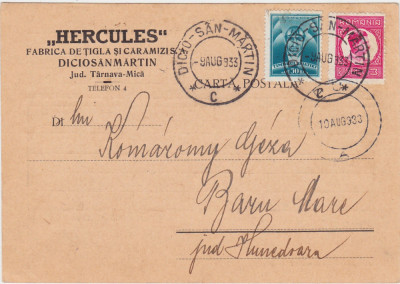 „HERCULES“
FABRICA DE ŢIGLA ŞI CARAMIZI S.
DICIOSANMARTIN
Jud. Târnava-Mică
TELEFON 4
DICIO-SÂN-MARTIN
-9AUG933
* C *
DICIO SÂN-MARTIN
ROMANIA
3
CARTĂ POSTALĂ
10AUG933
A
Dl
Komáromy Géza
Baru Mare
jud Hunedoara